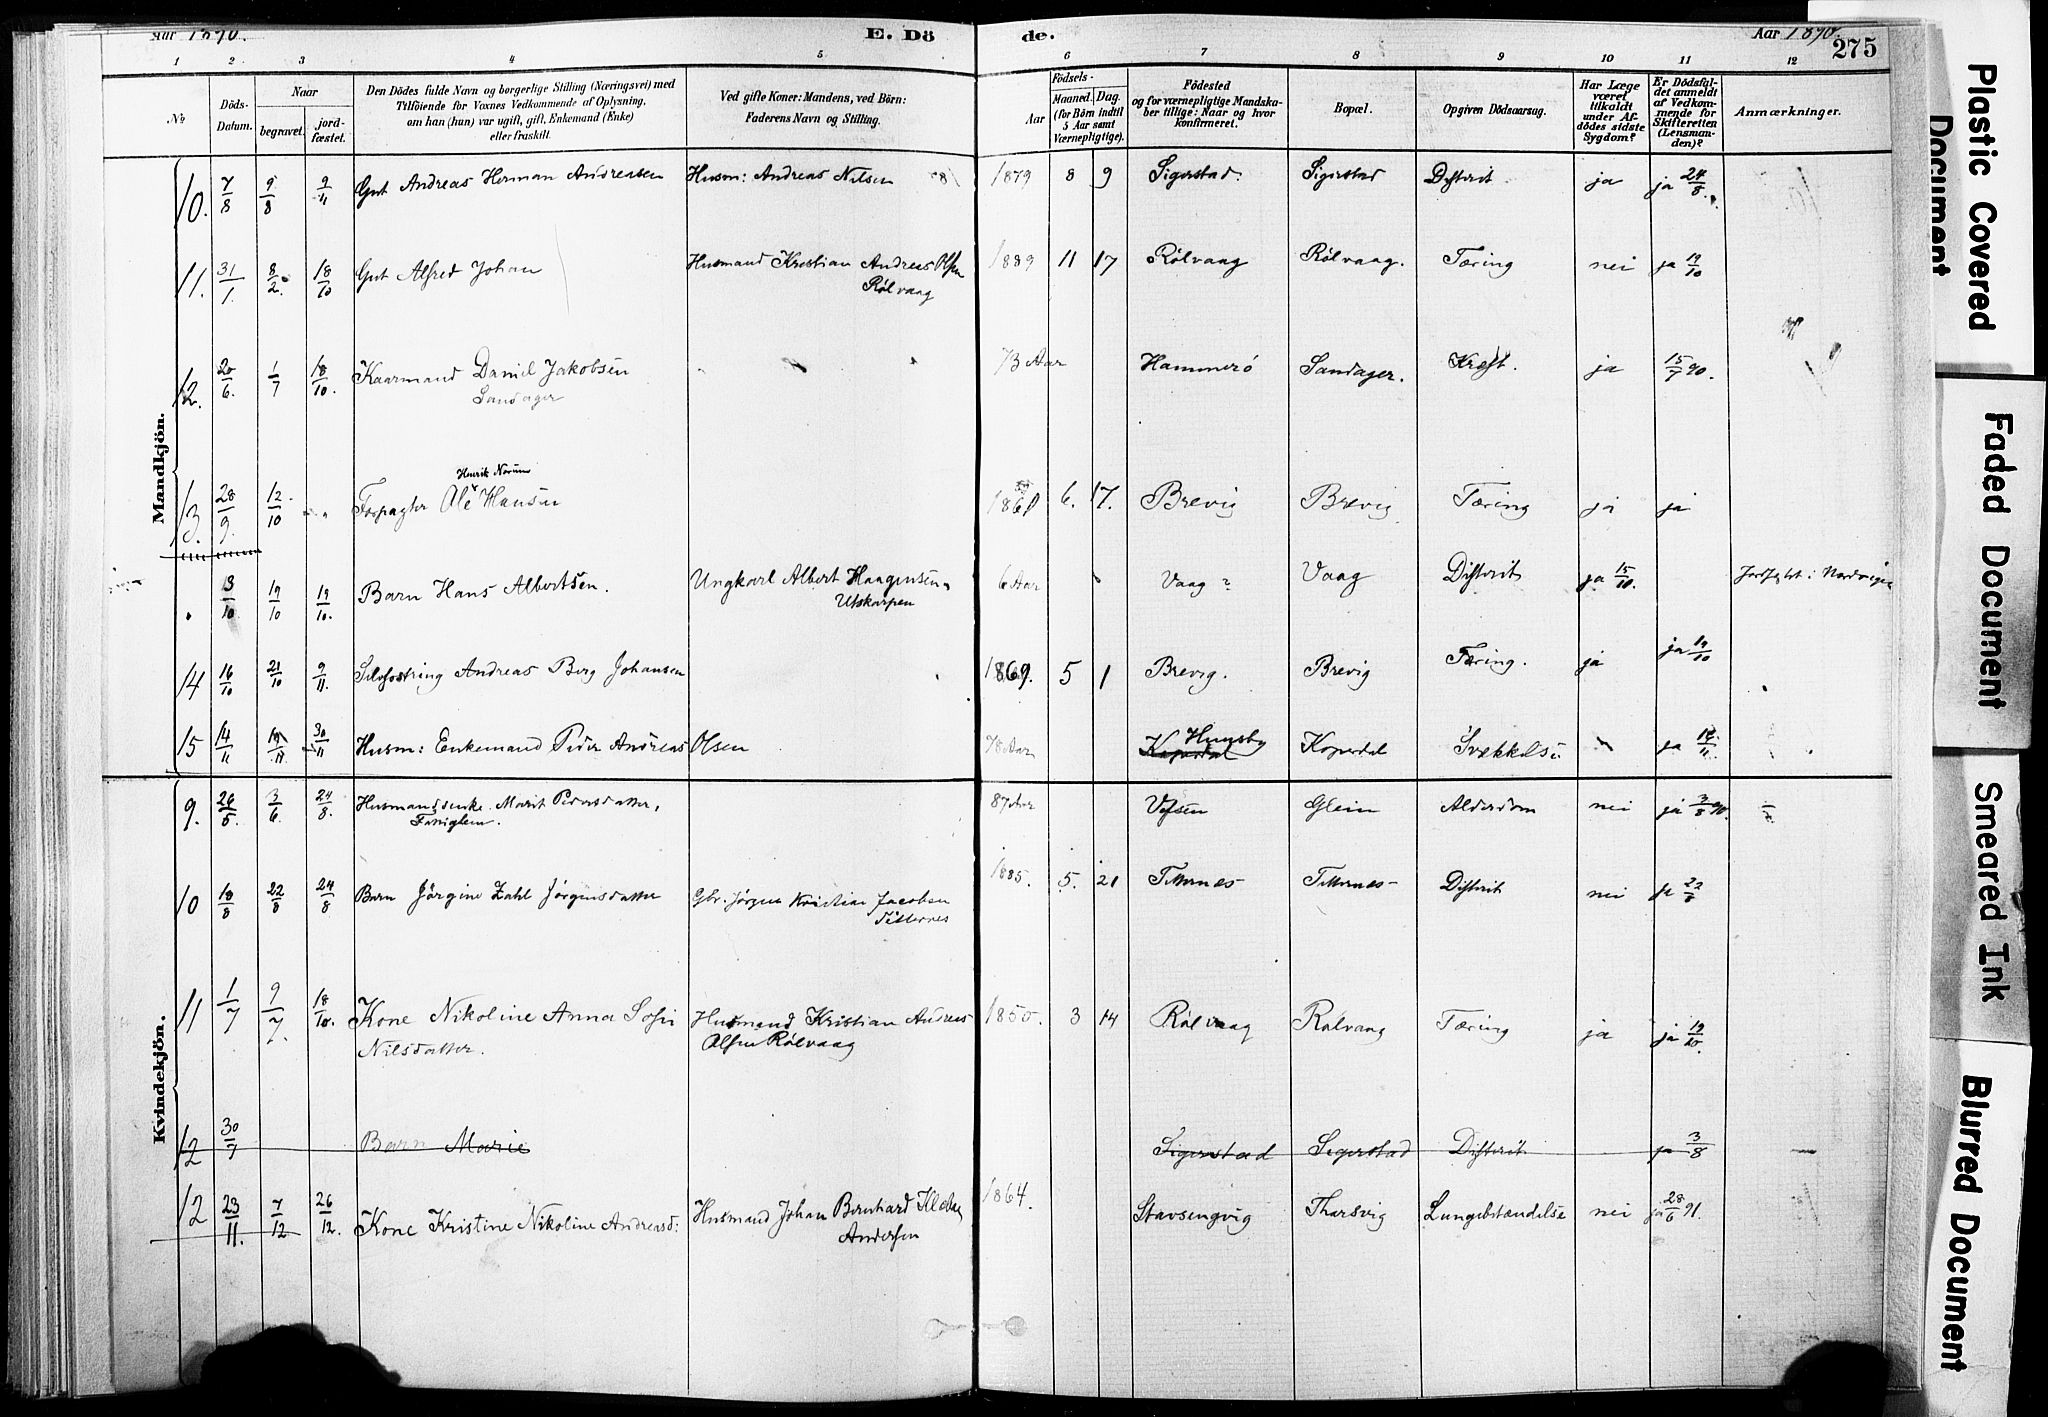 Aar 1890.
E. Dö
de.
Aar 1890.
275
1 2 3 4 5 6 7 8 9 10 11 12
No
Döds-
Datum.
Naar
begravet.
jord-
fæstet.
Den Dödes fulde Navn og borgerlige Stilling (Næringsvei) med
Tilföiende for Voxnes Vedkommende af Oplysning,
om han (hun) var ugift, gift, Enkemand (Enke)
eller fraskilt.
Ved gifte Koner: Mandens, ved Börn:
Faderens Navn og Stilling.
Födsels-
Aar
Maaned. Dag.
(for Börn indtil
5 Aar samt
Værnepligtige).
Födested
og for værnepligtige Mandska-
ber tillige: Naar og hvor
konfirmeret.
Bopæl.
Opgiven Dödsaarsag.
Har Læge
været
tilkaldt
under Af-
dödes sidste
Sygdom?
Er Dödsfal-
det anmeldt
af Vedkom-
mende for
Skifteretten
(Lensman-
den)?
Anmærkninger.
Mandkjön.
10. 7/8 9/8 9/11 Gut Andreas Herman Andreasen Husm: Andreas Nilsen 1879 8 9 Sigerstad. Sigerstad Difterit. ja ja 24/8.
11. 31/1. 8/2. 18/10 Gut Alfred Johan Husmand Kristian Andreas Olsen 1889 11 17 Rölvaag Rölvaag. Tæring nei ja 19/10
Rölvaag
12. 20/6. 1/7 18/10. Kaarmand Daniel Jakobsen 73 Aar Hammerö Sandager. Kræft. ja 15/7 90.
Sandager
Henrik Norum
13. 28/9. 12/10 " Forpagter Ole Hansen 1861 6. 17. Brevig Brevig Tæring ja ja
13/10 19/10 19/10. Barn Hans Albertsen. Ungkarl Albert Haagensen 6 Aar Vaag ? Vaag Difterit ja 15/10. Jordfæstet i Nordvigen
Utskarpen
14 16/10 21/10 9/11. Andreas Berg Johansen 1869. 5 1 Brevig. Brevig Tæring. ja ja 19/10
15 14/11 19/11 30/11 Husm: Enkemand Peder Andreas Olsen 78 Aar Kopardal Husby Kopardal Svækkelse ja 19/11.
Kvindekjön.
9. 26/5. 3/6. 24/8. Husmandsenke Marit Pedersdatter, 87 Aar Vefsen Glein Alderdom nei ja 3/8 90.
Fattiglem.
10 18/8 22/8 24/8 Barn Jörgine Zahl Jörgensdatter Gbr. Jörgen Kristian Jacobsen 1885. 5. 21 Titternes Titternes Difterit nei ja 22/8
Titternes
11 1/7 9/7. 18/10. Kone Nikoline Anna Sofie Husmand Kristian Andreas 1850. 3 14 Rölvaag Rölvaag Tæring ja ja 19/10.
Nilsdatter. Olsen Rölvaag
12 30/7 Barn Marie Sigerstad Sigerstad Difterit ja 3/8
12 23/11. 7/12 26/12. Kone Kristine Nikoline Andreasd: Husmand Johan Bernhard 1864. Stavsengvig Tharsvig Lungebetændelse nei ja 28/6 91.
Andersen
Plastic Covered
Document
Faded Document
Smeared Ink
Blurred Document